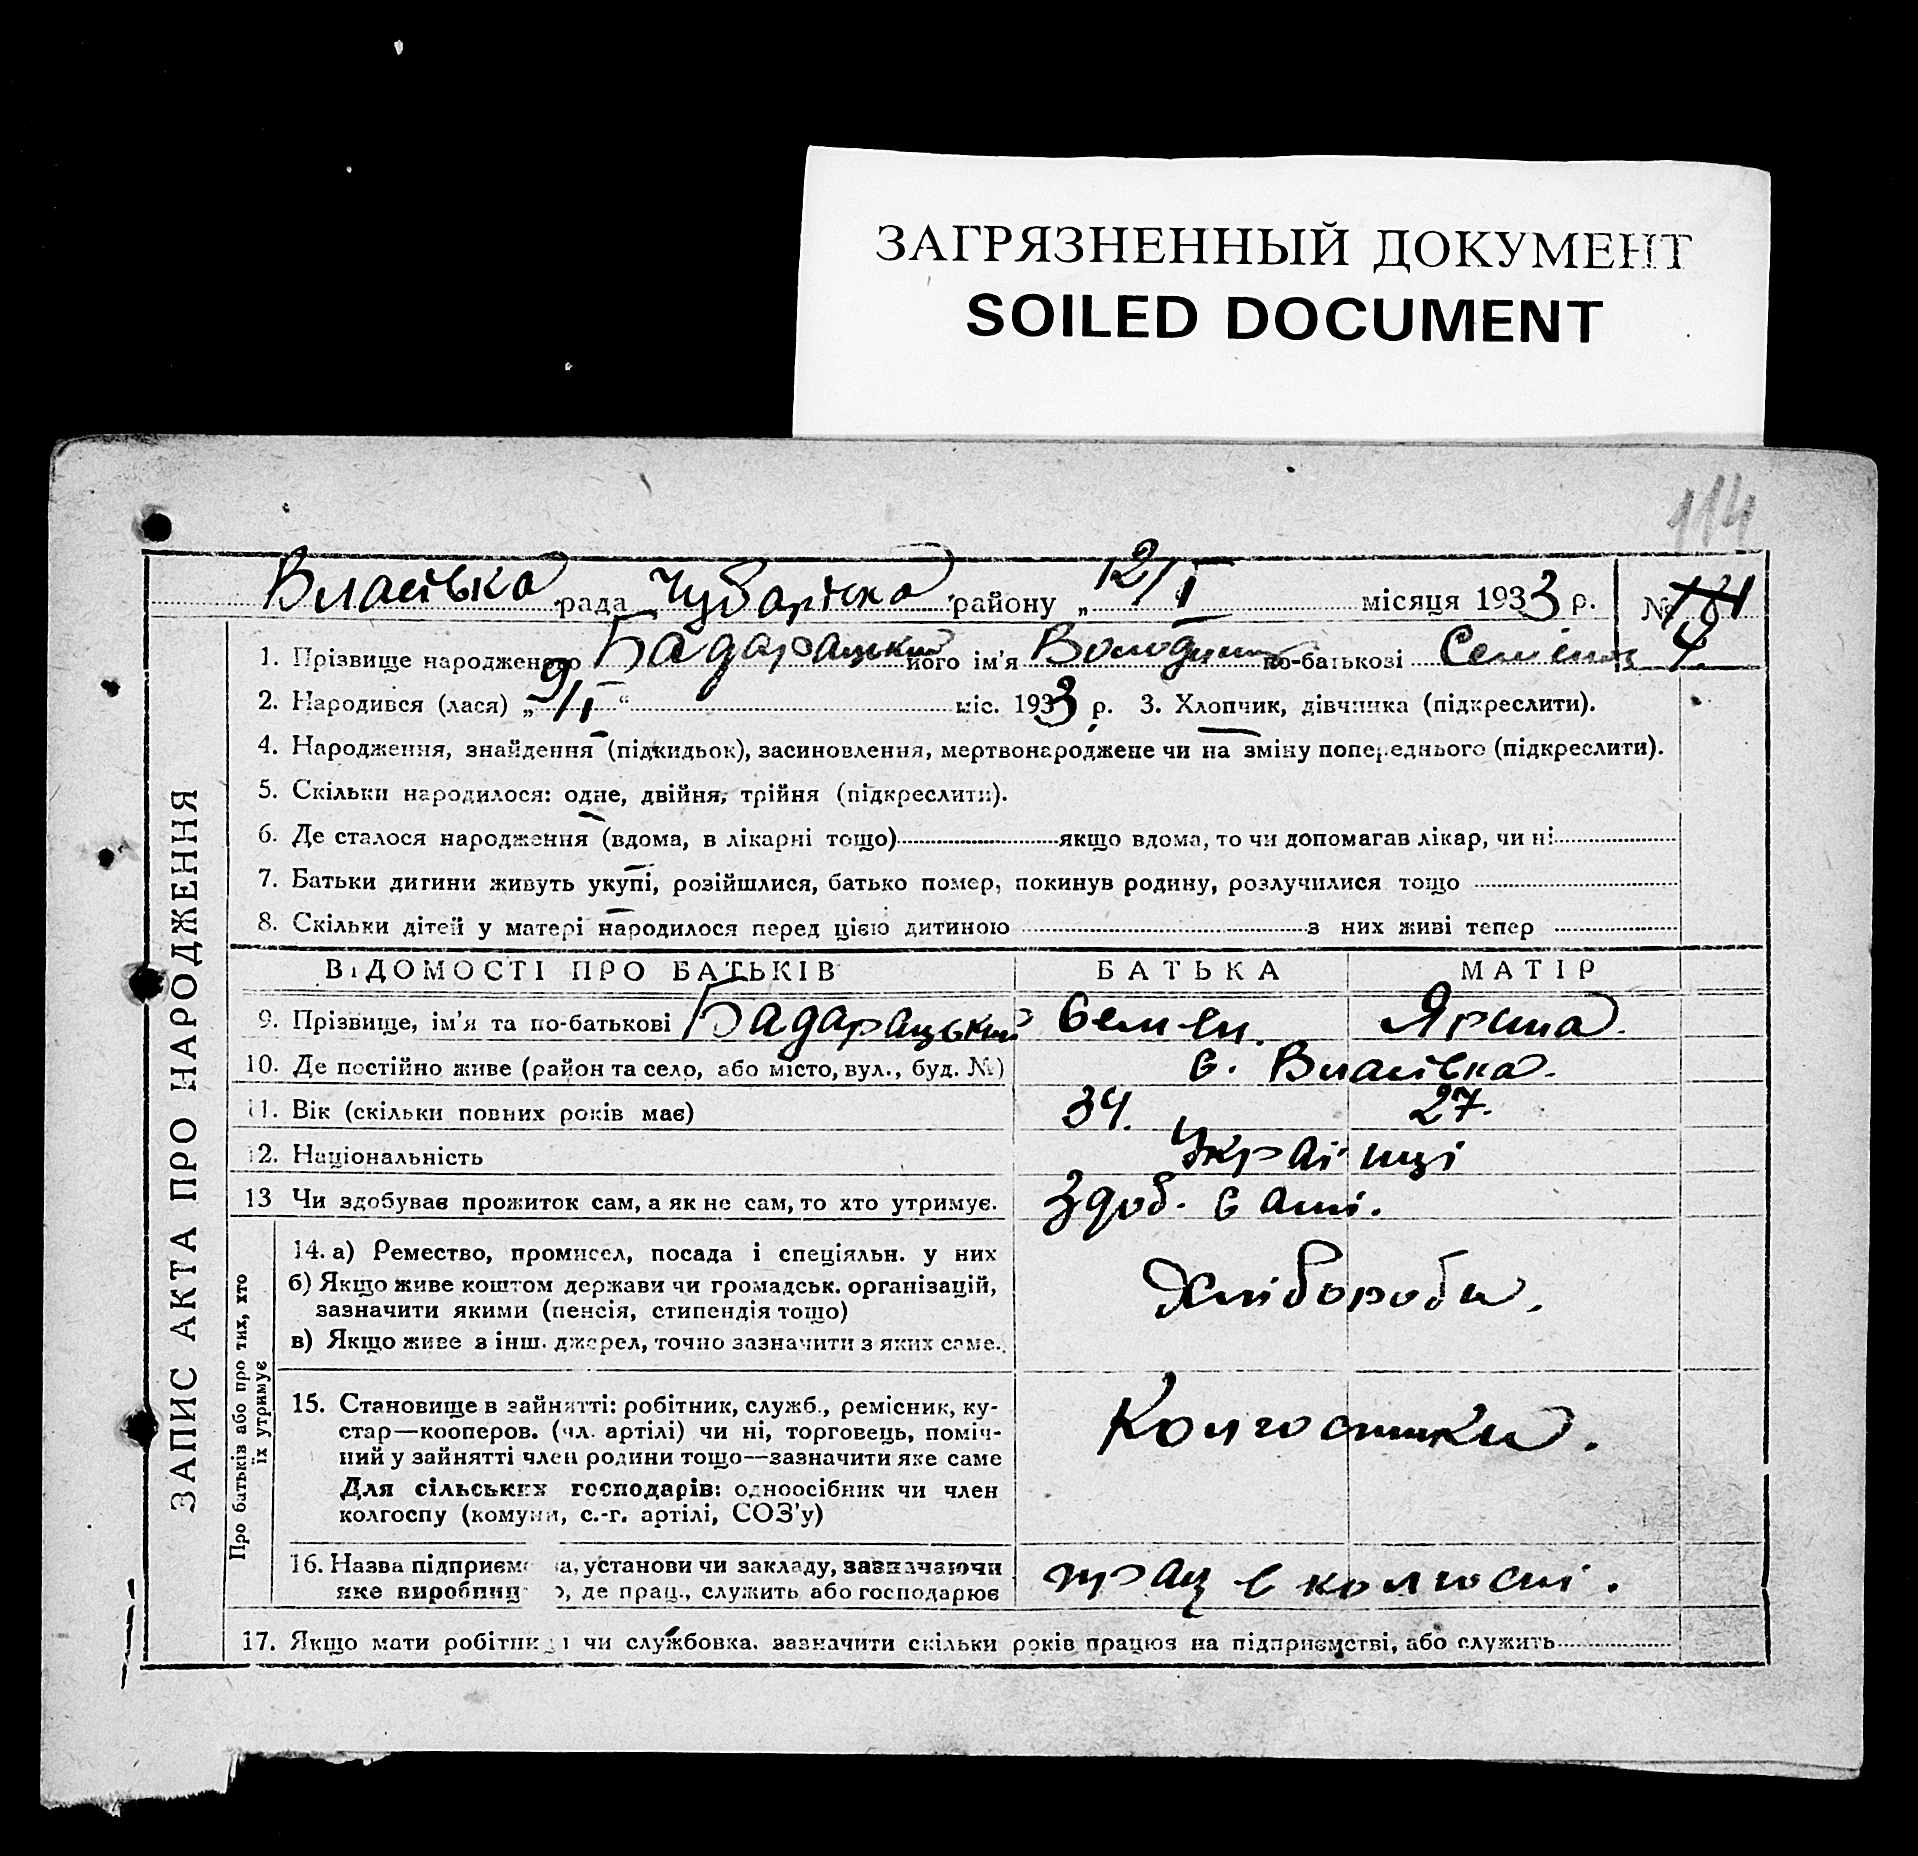 ЗАГРЯЗНЕННЫЙ ДОКУМЕНТ
SOILED DOCUMENT
114
Власівка рада Чубарівска району „ 12/I місяця 1933 р. №
4
1. Прізвище народженого Бадарацький його ім'я Володимир по-батькові
2. Народився (лася) „ 9/I “ міс. 1933 р. 3. Хлопчик, дівчинка (підкреслити).
4. Народження, знайдення (підкидьок), засиновлення, мертвонароджене чи на зміну попереднього (підкреслити).
5. Скільки народилося: одне, двійня, трійня (підкреслити).
6. Де сталося народження (вдома, в лікарні тощо) якщо вдома, то чи допомагав лікар, чи ні
7. Батьки дитини живуть укупі, розійшлися, батько помер, покинув родину, розлучилися тощо
8. Скільки дітей у матері народилося перед цією дитиною з них живі тепер
ВІДОМОСТІ ПРО БАТЬКІВ БАТЬКА МАТІР
9. Прізвище, ім'я та по-батькові Бадарацький Семен. Ярина.
10. Де постійно живе (район та село, або місто, вул., буд. №) с. Власівка.
11. Вік (скільки повних років має) 34. 27.
12. Національність Українці
13 Чи здобуває прожиток сам, а як не сам, то хто утримує. Здоб. самі.
14. а) Ремество, промисел, посада і спеціяльн. у них
б) Якщо живе коштом держави чи громадськ. організацій,
зазначити якими (пенсія, стипендія тощо)
в) Якщо живе з інш. джерел, точно зазначити з яких саме.
Хлібороби.
15. Становище в зайнятті: робітник, служб., ремісник, ку-
стар—кооперов. (чл. артілі) чи ні, торговець, поміч-
ний у зайнятті член родини тощо—зазначити яке саме
Для сільських господарів: одноосібник чи член
колгоспу (комуни, с.-г. артілі, СОЗ'у)
Колгоспники.
16. Назва підприємства, установи чи закладу, зазначаючи
яке виробництво, де прац., служить або господарює
прац в колгоспі.
17. Якщо мати робітниця чи службовка, зазначити скільки років працює на підприємстві, або служить
ЗАПИС АКТА ПРО НАРОДЖЕННЯ
Про батьків або про тих, хто
їх утримує